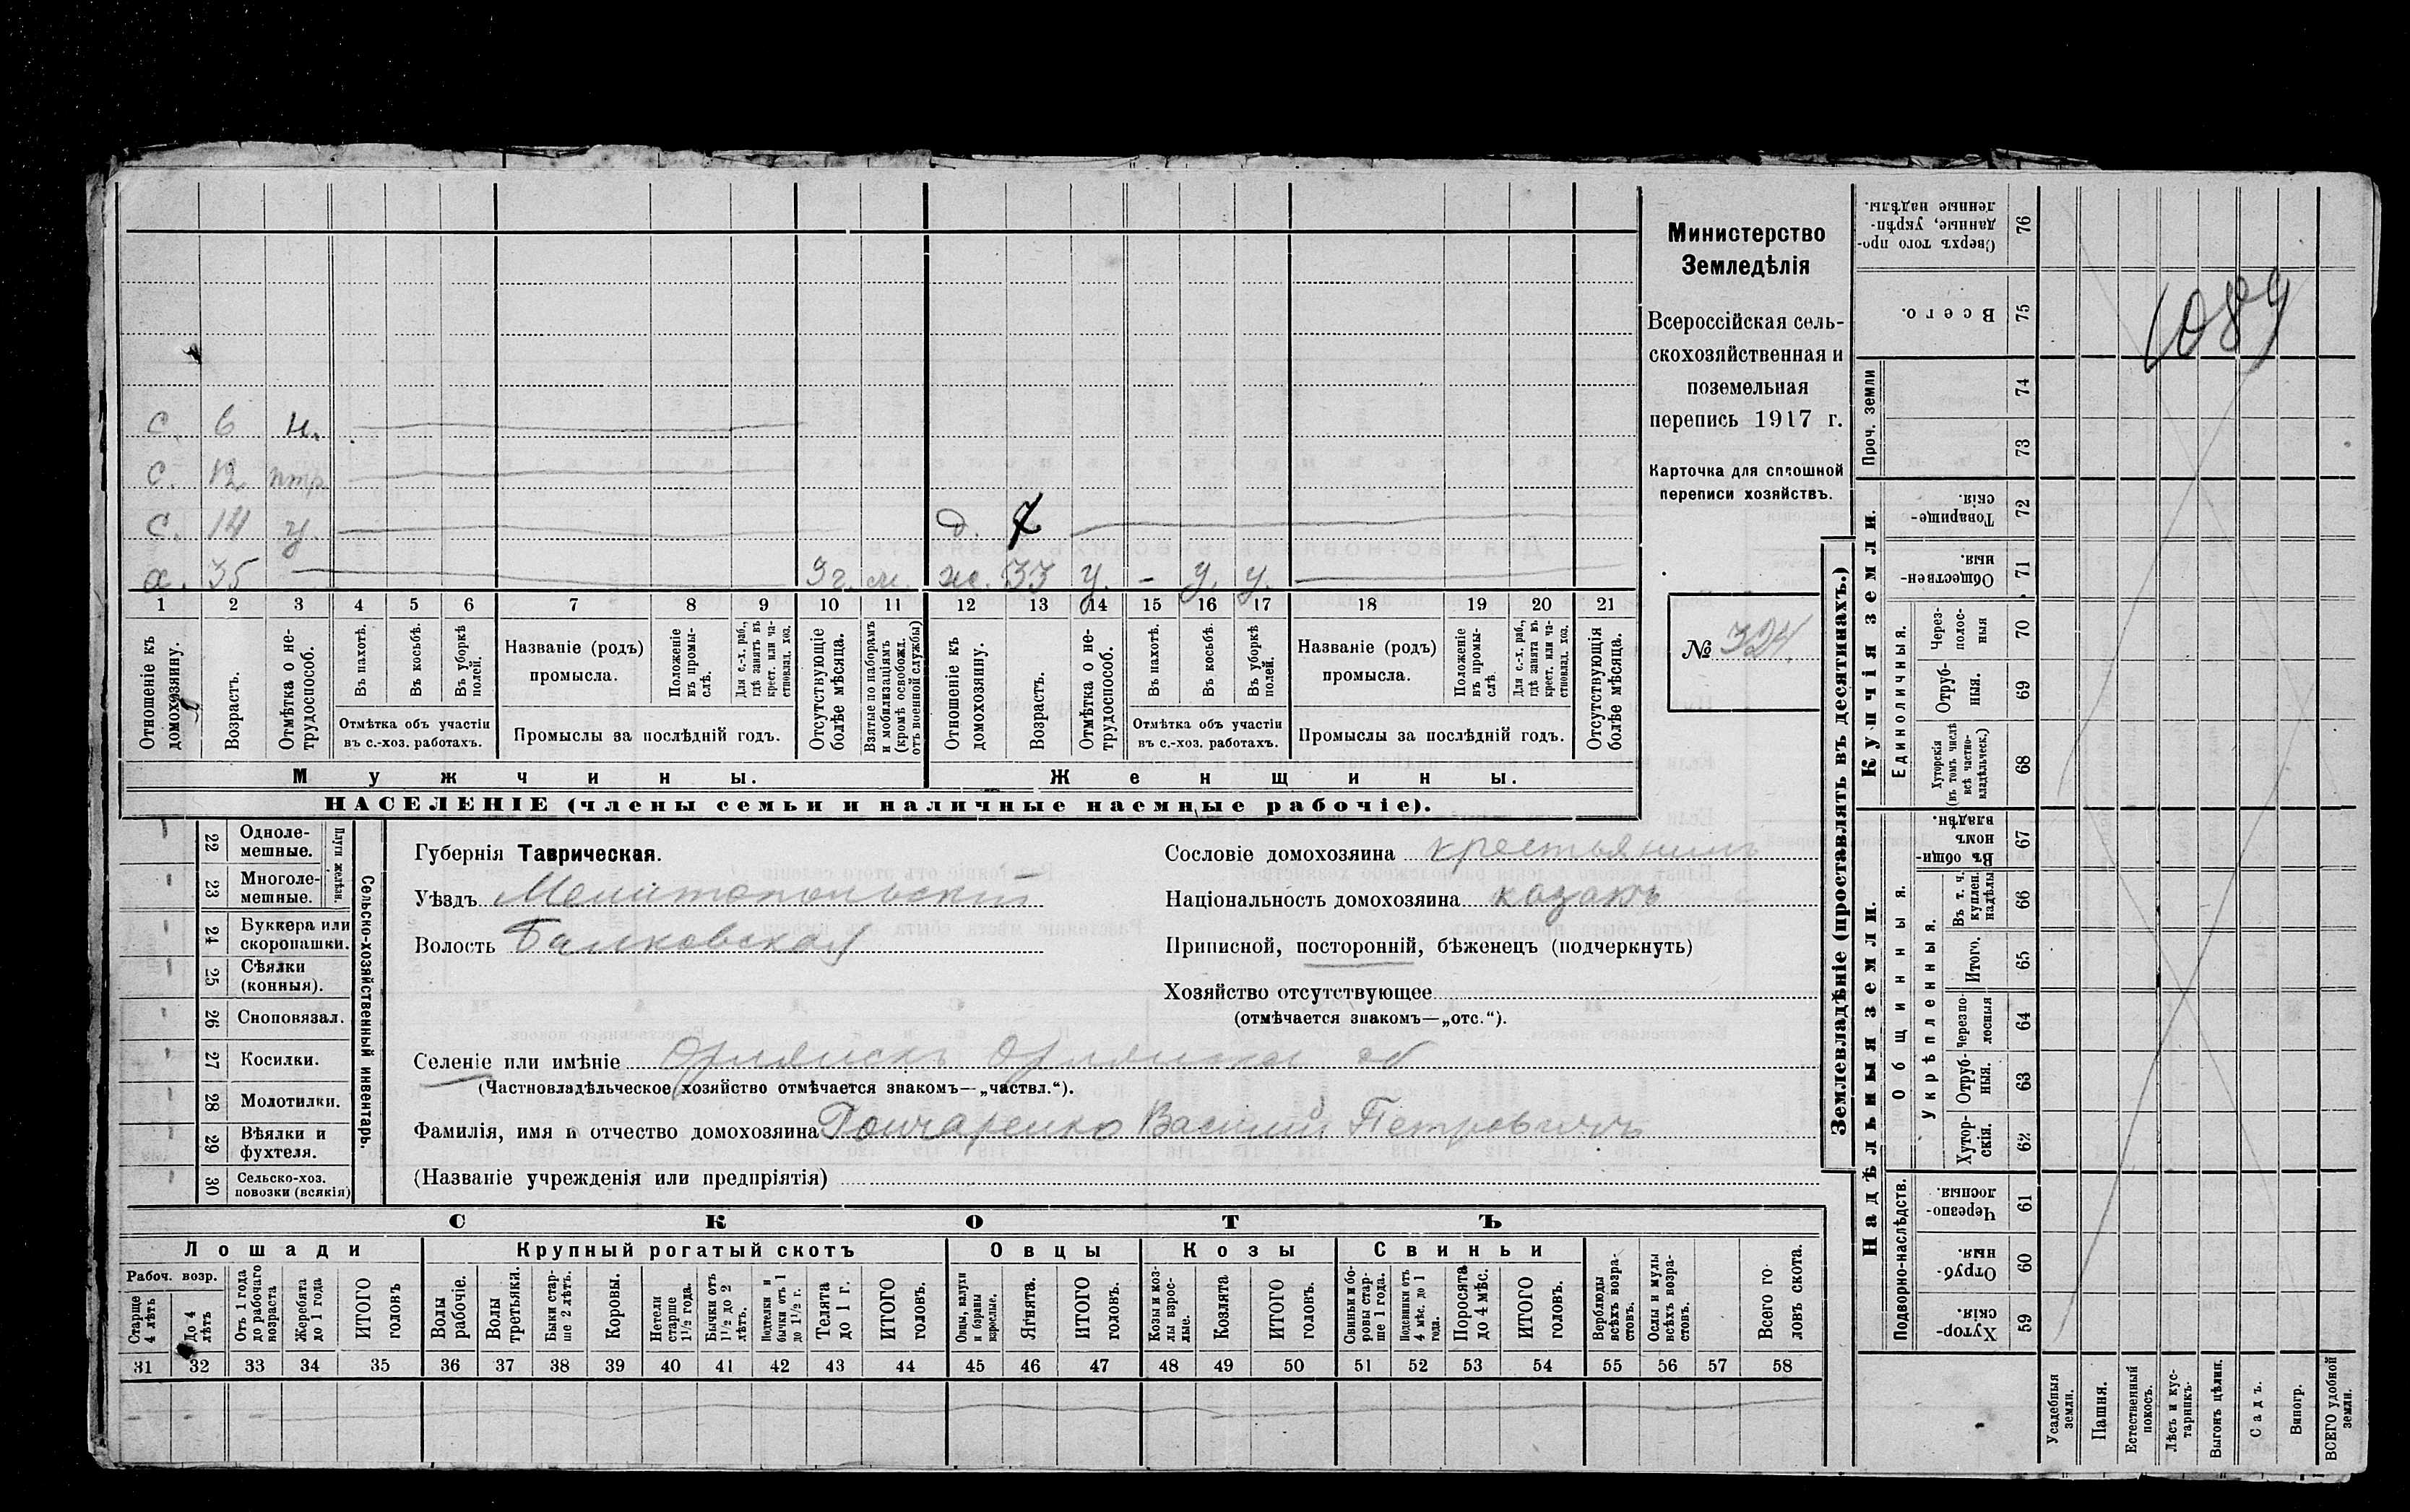 Министерство
Земледѣлія
Всероссійская сель-
скохозяйственная и
поземельная
перепись 1917 г.
Карточка для сплошной
переписи хозяйствъ.
№ 324
1089
с. 6 н.
с. 12 птр
с. 14 у. д. 7
х. 35 3 г. м. ж. 33 у. - у. у.
1 2 3 4 5 6 7 8 9 10 11 12 13 14 15 16 17 18 19 20 21
Отношеніе къ домохозяину.
Возрастъ.
Отмѣтка о не-трудоспособ.
Въ пахотѣ.
Въ косьбѣ.
Въ уборкѣ полей.
Отмѣтка объ участіи
въ с.-хоз. работахъ.
Названіе (родъ)
промысла.
Положеніе въ промы-слѣ.
Для с.-х. раб., гдѣ занятъ въ крест. или ча-стновлад. хоз.
Промыслы за послѣдній годъ.
Отсутствующіе болѣе мѣсяца.
Взятые по наборамъ и мобилизаціямъ (кромѣ освобожд. отъ военной службы)
Отношеніе къ домохозяину.
Возрастъ.
Отмѣтка о не-трудоспособ.
Въ пахотѣ.
Въ косьбѣ.
Въ уборкѣ полей.
Отмѣтка объ участіи
въ с.-хоз. работахъ.
Названіе (родъ)
промысла.
Положеніе въ промы-слѣ.
Для с.-х. раб., гдѣ занята въ крест. или ча-стновлад. хоз.
Промыслы за послѣдній годъ.
Отсутствующія болѣе мѣсяца.
Мужчины. Женщины.
НАСЕЛЕНІЕ (члены семьи и наличные наемные рабочіе).
Сельско-хозяйственный инвентарь.
Плуги желѣзн.
22 Одноле-мешные.
23 Многоле-мешные.
24 Буккера или скоропашки.
25 Сѣялки (конныя).
26 Сноповязал.
27 Косилки.
28 Молотилки.
29 Вѣялки и фухтеля.
30 Сельско-хоз. повозки (всякія)
Губернія Таврическая.
Уѣздъ Мелитопольскій
Волость Балковская
Сословіе домохозяина крестьянинъ
Національность домохозяина казакъ
Приписной, посторонній, бѣженецъ (подчеркнуть)
Хозяйство отсутствующее
(отмѣчается знакомъ—„отс.“).
Селеніе или имѣніе Орлянскъ
(Частновладѣльческое хозяйство отмѣчается знакомъ—„частвл.“).
Фамилія, имя и отчество домохозяина Гончаренко Василій Петровичъ
(Названіе учрежденія или предпріятія)
СКОТЪ
Лошади Крупный рогатый скотъ Овцы Козы Свиньи
Рабоч. возр.
Старше 4 лѣтъ
До 4 лѣтъ
Отъ 1 года до рабочаго возраста
Жеребята до 1 года
ИТОГО головъ
Волы рабочіе.
Волы третьяки.
Быки стар-ше 2 лѣтъ.
Коровы.
Нетели старше 1½ года.
Бычки отъ 1½ до 2 лѣтъ.
Подтелки и бычки отъ 1 до 1½ г.
Телята до 1 г.
ИТОГО головъ.
Овцы, валухи и бараны взрослые.
Ягнята.
ИТОГО головъ.
Козы и коз-лы взрос-лые.
Козлята
ИТОГО головъ.
Свиньи и бо-ровы стар-ше 1 года.
Подсвинки отъ 4 мѣс. до 1 года.
Поросята до 4 мѣс.
ИТОГО головъ.
Верблюды всѣхъ возра-стовъ.
Ослы и мулы всѣхъ возра-стовъ.
Всего го-ловъ скота.
31 32 33 34 35 36 37 38 39 40 41 42 43 44 45 46 47 48 49 50 51 52 53 54 55 56 57 58
Землевладѣніе (проставлять въ десятинахъ.)
Купчія земли.
Надѣльныя земли.
Проч. земли
Единоличныя.
Общинныя.
Укрѣпленныя.
Подворно-наслѣдств.
76 Сверхъ того про-данные, укрѣп-ленные надѣлы.
75 Всего.
74
73
72 Товарище-скія.
71 Обществен-ныя.
70 Через-полос-ныя
69 Отруб-ныя.
68 Хуторскія (въ томъ числѣ всѣ частно-владѣльческ.)
67 Въ общи-номъ владѣн.
66 Въ т. ч. куплен. надѣлы
65 Итого.
64 Черезпо-лосныя
63 Отруб-ныя.
62 Хутор-скія.
61 Черезпо-лосныя.
60 Отруб-ныя.
59 Хутор-скія.
Усадебныя земли.
Пашня.
Естественный покосъ.
Лѣсъ и кус-тарникъ.
Выгонъ цѣлин.
Садъ.
Виногр.
ВСЕГО удобной земли.